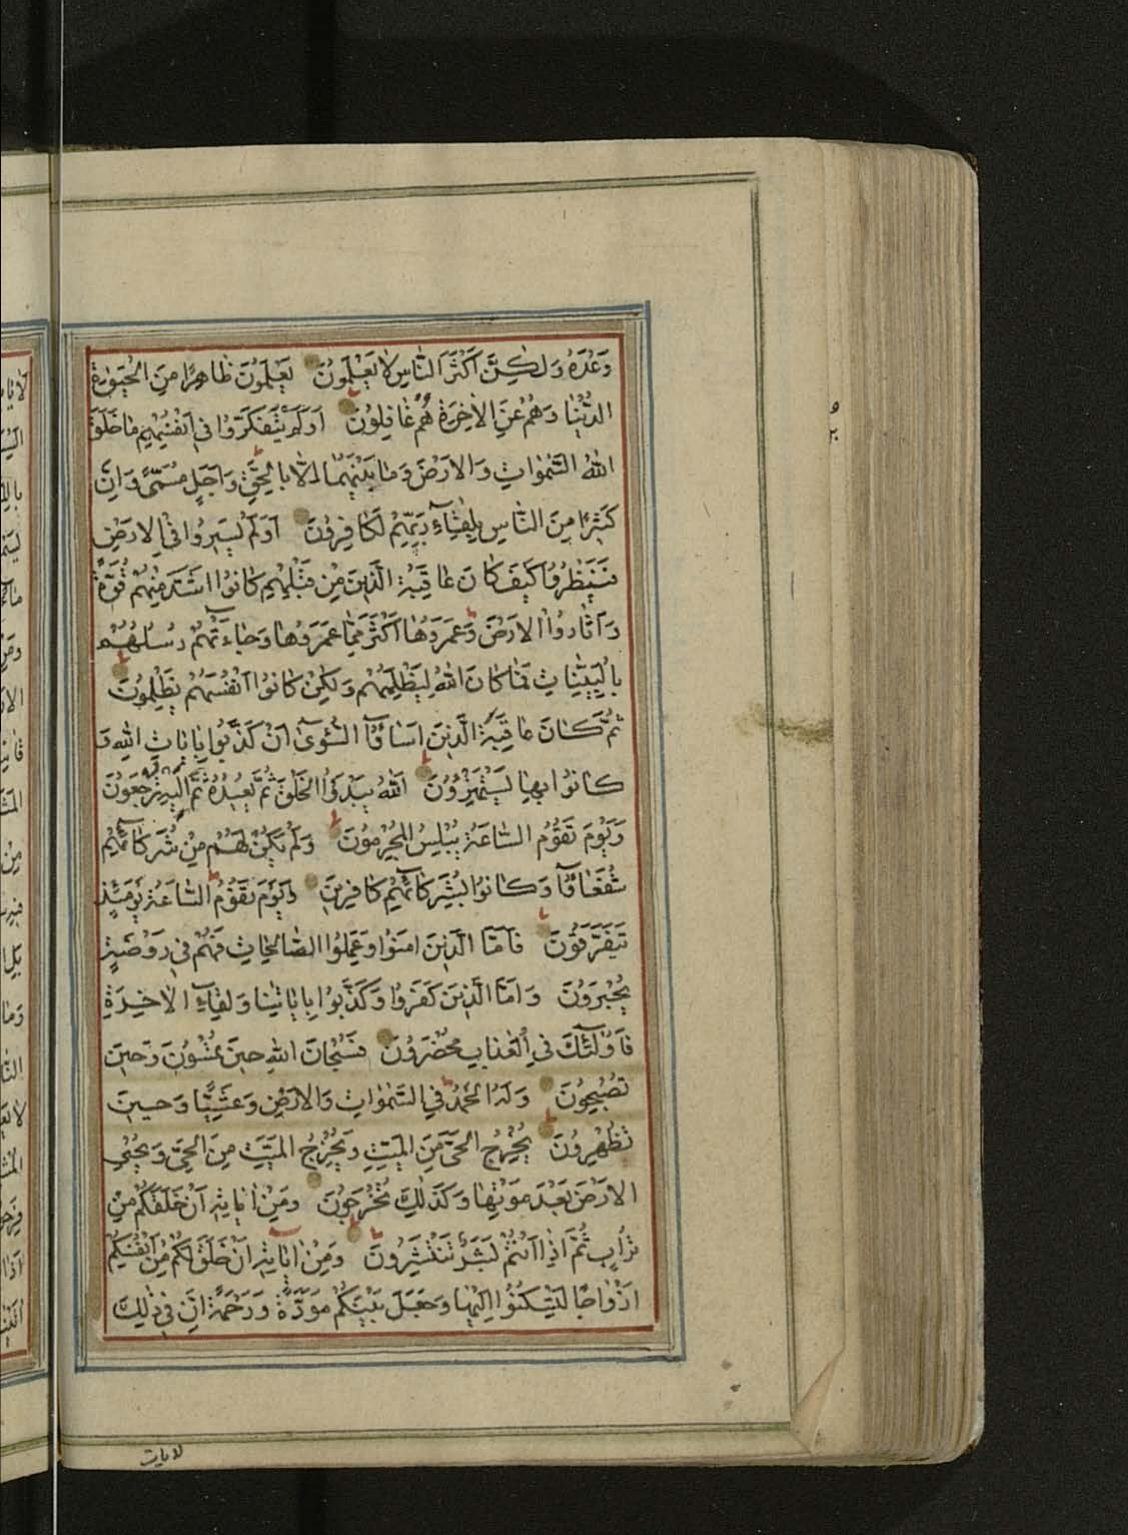 وَعْدَهُ وَلٰكِنَّ اَكْثَرَ النّٰاسِ لٰا يَعْلَمُونَ يَعْلَمُونَ ظٰاهِرًا مِنَ الْحَيٰوةِ
الدُّنْيٰا وَهُمْ عَنِ الْاٰخِرَةِ هُمْ غٰافِلُونَ اَوَلَمْ يَتَفَكَّرُوا فِى اَنْفُسِهِمْ مٰا خَلَقَ
اللّٰهُ السَّمٰوٰاتِ وَالْاَرْضَ وَمٰا بَيْنَهُمٰا اِلّٰا بِالْحَقِّ وَاَجَلٍ مُسَمًّى وَاِنَّ
كَثِيرًا مِنَ النّٰاسِ بِلِقٰآءِ رَبِّهِمْ لَكٰافِرُونَ اَوَلَمْ يَسِيرُوا فِى الْاَرْضِ
فَيَنْظُرُوا كَيْفَ كٰانَ عٰاقِبَةُ الَّذِينَ مِنْ قَبْلِهِمْ كٰانُوا اَشَدَّ مِنْهُمْ قُوَّةً
وَاَثٰارُوا الْاَرْضَ وَعَمَرُوهٰا اَكْثَرَ مِمّٰا عَمَرُوهٰا وَجٰآءَتْهُمْ رُسُلُهُمْ
بِالْبَيِّنٰاتِ فَمٰا كٰانَ اللّٰهُ لِيَظْلِمَهُمْ وَلٰكِنْ كٰانُوا اَنْفُسَهُمْ يَظْلِمُونَ
ثُمَّ كٰانَ عٰاقِبَةَ الَّذِينَ اَسٰاؤُا السُّوآىٰ اَنْ كَذَّبُوا بِاٰيٰاتِ اللّٰهِ وَ
كٰانُوا بِهٰا يَسْتَهْزِؤُنَ اَللّٰهُ يَبْدَؤُا الْخَلْقَ ثُمَّ يُعِيدُهُ ثُمَّ اِلَيْهِ تُرْجَعُونَ
وَيَوْمَ تَقُومُ السّٰاعَةُ يُبْلِسُ الْمُجْرِمُونَ وَلَمْ يَكُنْ لَهُمْ مِنْ شُرَكٰآئِهِمْ
شُفَعٰآؤُا وَكٰانُوا بِشُرَكٰآئِهِمْ كٰافِرِينَ وَيَوْمَ تَقُومُ السّٰاعَةُ يَوْمَئِذٍ
يَتَفَرَّقُونَ فَاَمَّا الَّذِينَ اٰمَنُوا وَعَمِلُوا الصّٰالِحٰاتِ فَهُمْ فِى رَوْضَةٍ
يُحْبَرُونَ وَاَمَّا الَّذِينَ كَفَرُوا وَكَذَّبُوا بِاٰيٰاتِنٰا وَلِقٰآءِ الْاٰخِرَةِ
فَاُولٰٓئِكَ فِى الْعَذٰابِ مُحْضَرُونَ فَسُبْحٰانَ اللّٰهِ حِينَ تُمْسُونَ وَحِينَ
تُصْبِحُونَ وَلَهُ الْحَمْدُ فِى السَّمٰوٰاتِ وَالْاَرْضِ وَعَشِيًّا وَحِينَ
تُظْهِرُونَ يُخْرِجُ الْحَىَّ مِنَ الْمَيِّتِ وَيُخْرِجُ الْمَيِّتَ مِنَ الْحَىِّ وَيُحْيِى
الْاَرْضَ بَعْدَ مَوْتِهٰا وَكَذٰلِكَ تُخْرَجُونَ وَمِنْ اٰيٰاتِهِ اَنْ خَلَقَكُمْ مِنْ
تُرٰابٍ ثُمَّ اِذٰا اَنْتُمْ بَشَرٌ تَنْتَشِرُونَ وَمِنْ اٰيٰاتِهِ اَنْ خَلَقَ لَكُمْ مِنْ اَنْفُسِكُمْ
اَزْوٰاجًا لِتَسْكُنُوا اِلَيْهٰا وَجَعَلَ بَيْنَكُمْ مَوَدَّةً وَرَحْمَةً اِنَّ فِى ذٰلِكَ
لايات